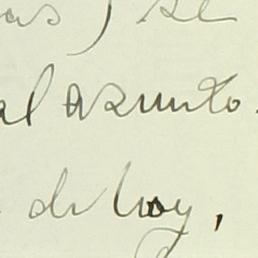 as) se
al asunto.
de hoy,